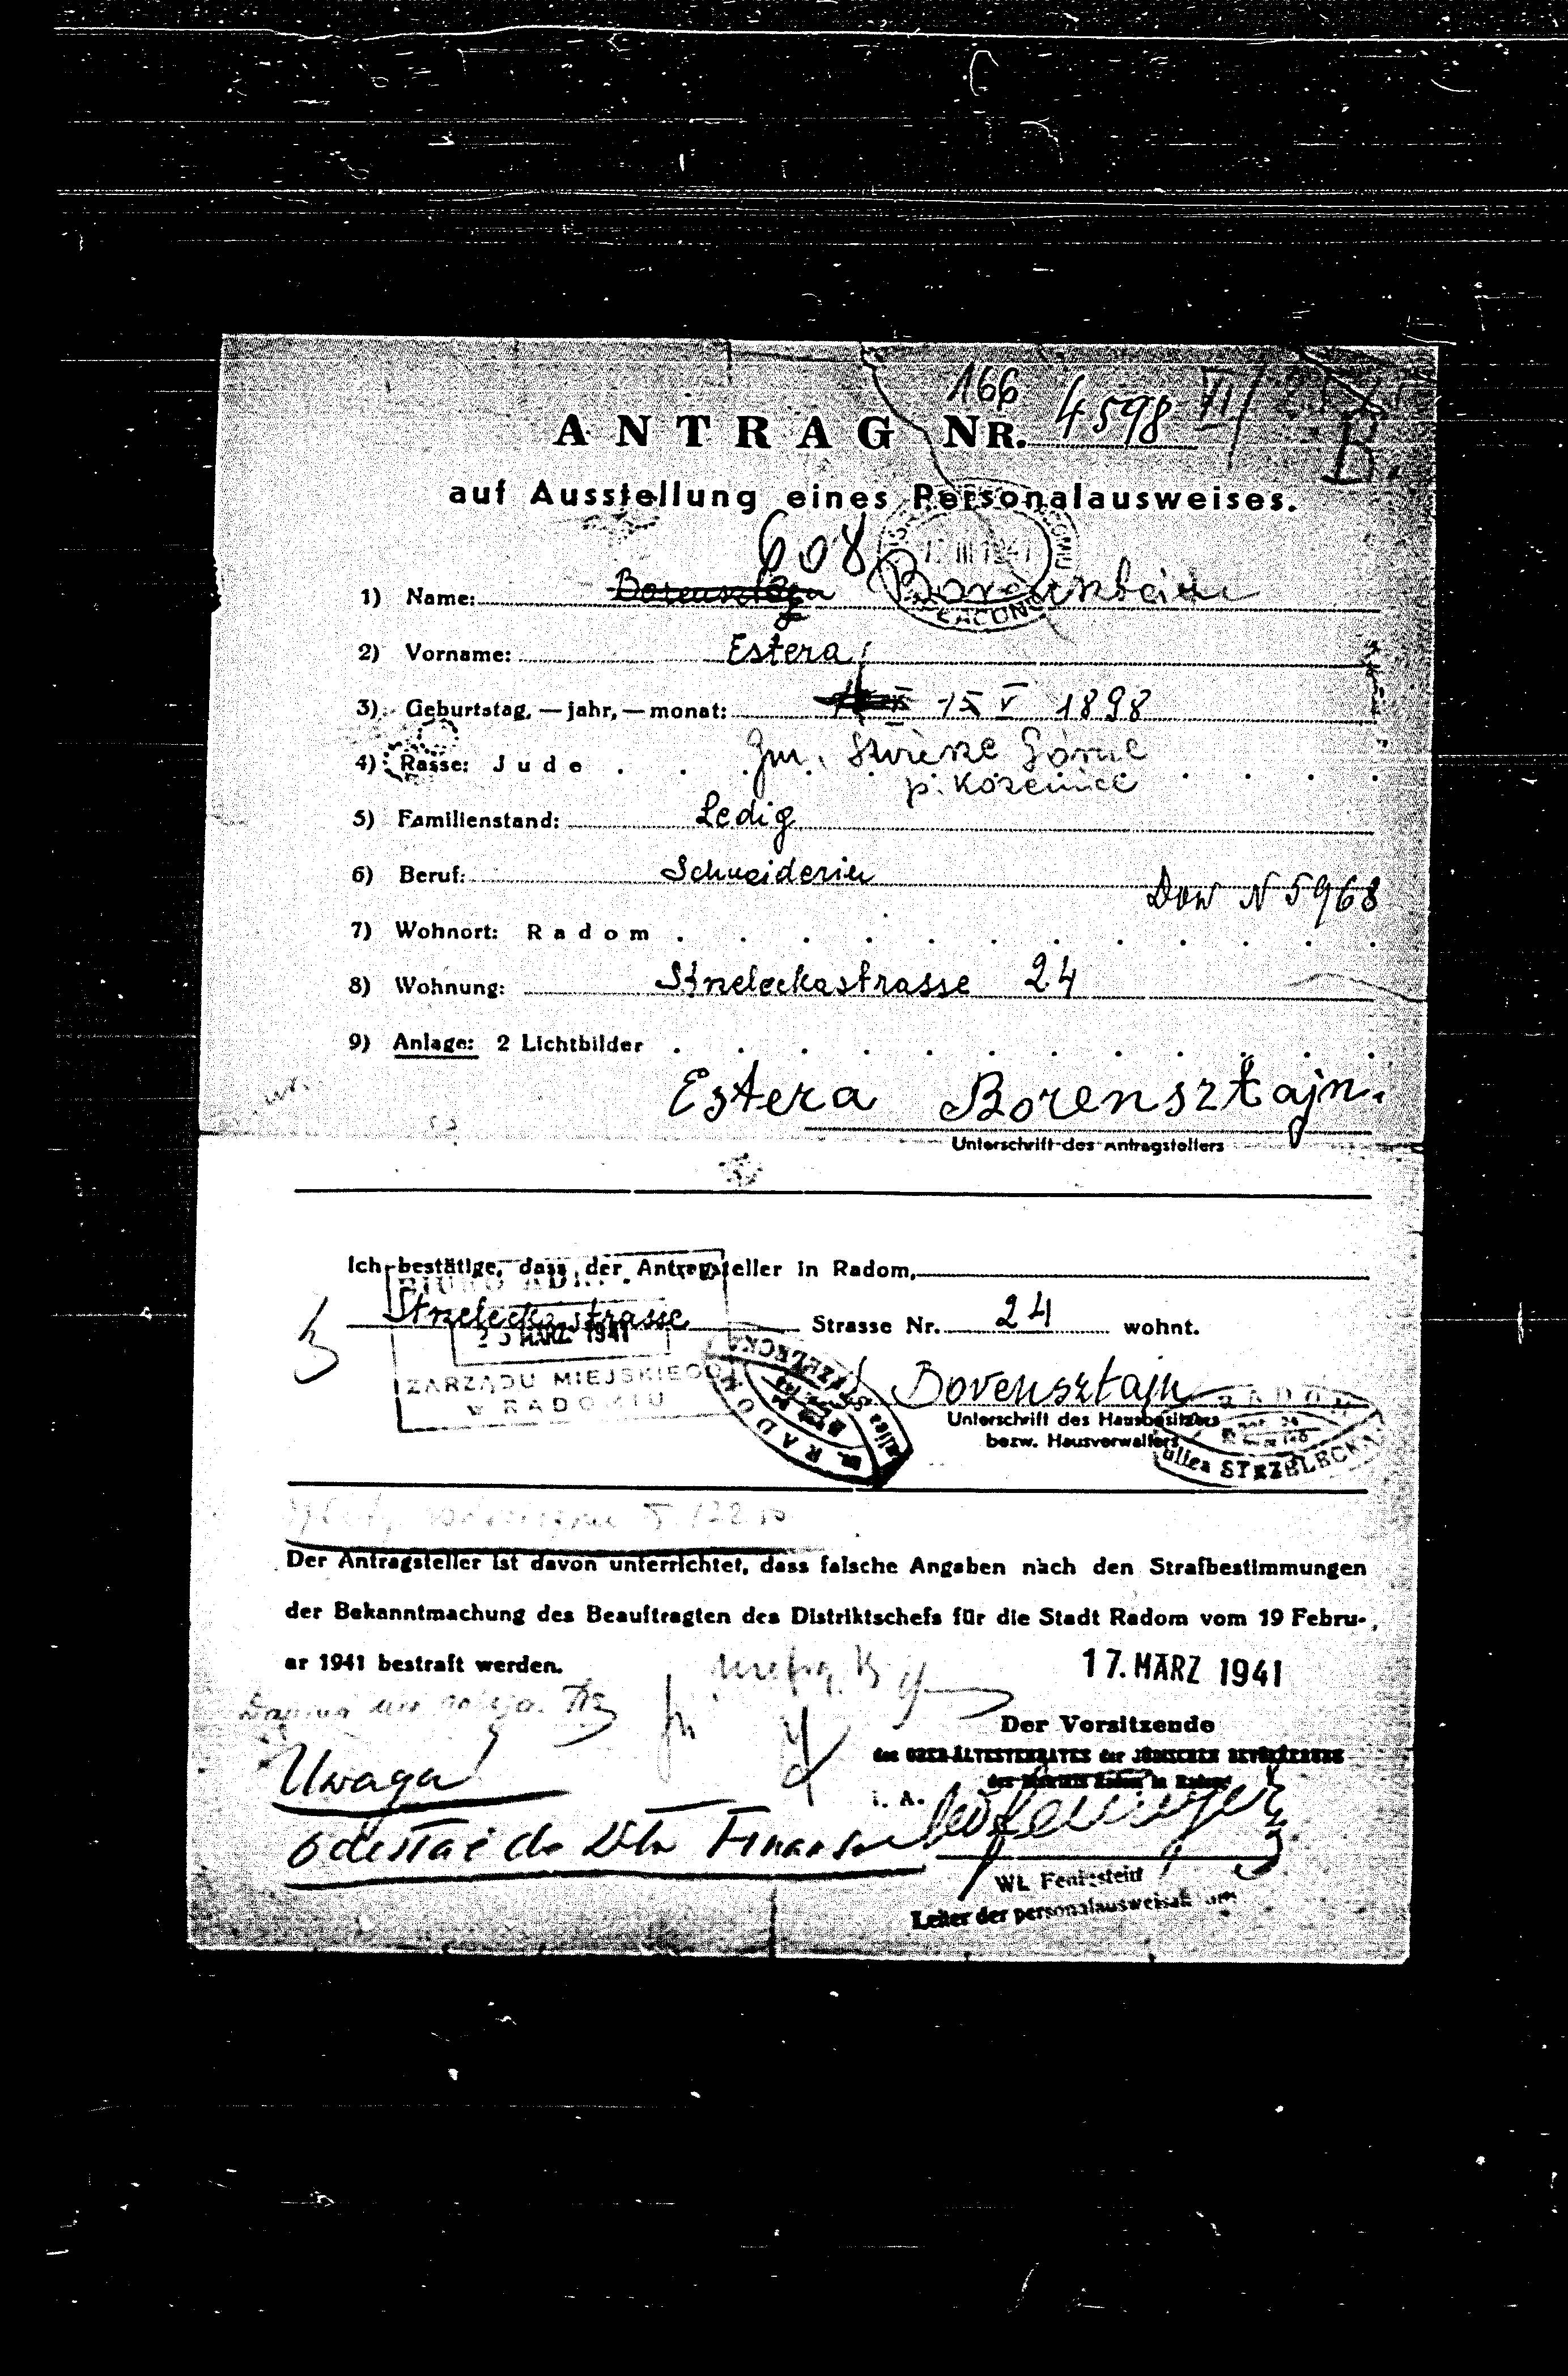 166
ANTRAG NR. 4598 VI/
B.
auf Ausstellung eines Personalausweises.
608
1) Name: Borensztajn Borensztein
2) Vorname: Estera
3) Geburtstag, — jahr, — monat: 15 V 1898
4) Rasse: Jude Gm. Świerże Górne
p. Kozienice
5) Familienstand: Ledig
6) Beruf: Schneiderin
Dow N 5968
7) Wohnort: Radom
8) Wohnung: Strzeleckastrasse 24
9) Anlage: 2 Lichtbilder
Estera Borensztajn.
Unterschrift des Antragstellers
Ich bestätige, dass der Antragsteller in Radom,
Strzeleckastrasse Strasse Nr. 24 wohnt.
MÄRZ 1941
ZARZĄDU MIEJSKIEGO
w RADOMIU
m. RADOM
ulica STRZELECKA
Borensztajn
Unterschrift des Hausbesitzers
bezw. Hausverwalters
RADOM
ulica STRZELECKA
Der Antragsteller ist davon unterrichtet, dass falsche Angaben nach den Strafbestimmungen
der Bekanntmachung des Beauftragten des Distriktschefs für die Stadt Radom vom 19 Febru-
ar 1941 bestraft werden.
17. MÄRZ 1941
Der Vorsitzende
des OBER-ÄLTESTENRATES der JÜDISCHEN BEVÖLKERUNG
des Distrikts Radom in Radom
i. A.
Uwaga!
odesłać do Wydz Finanso
Leiter der personalausweisab